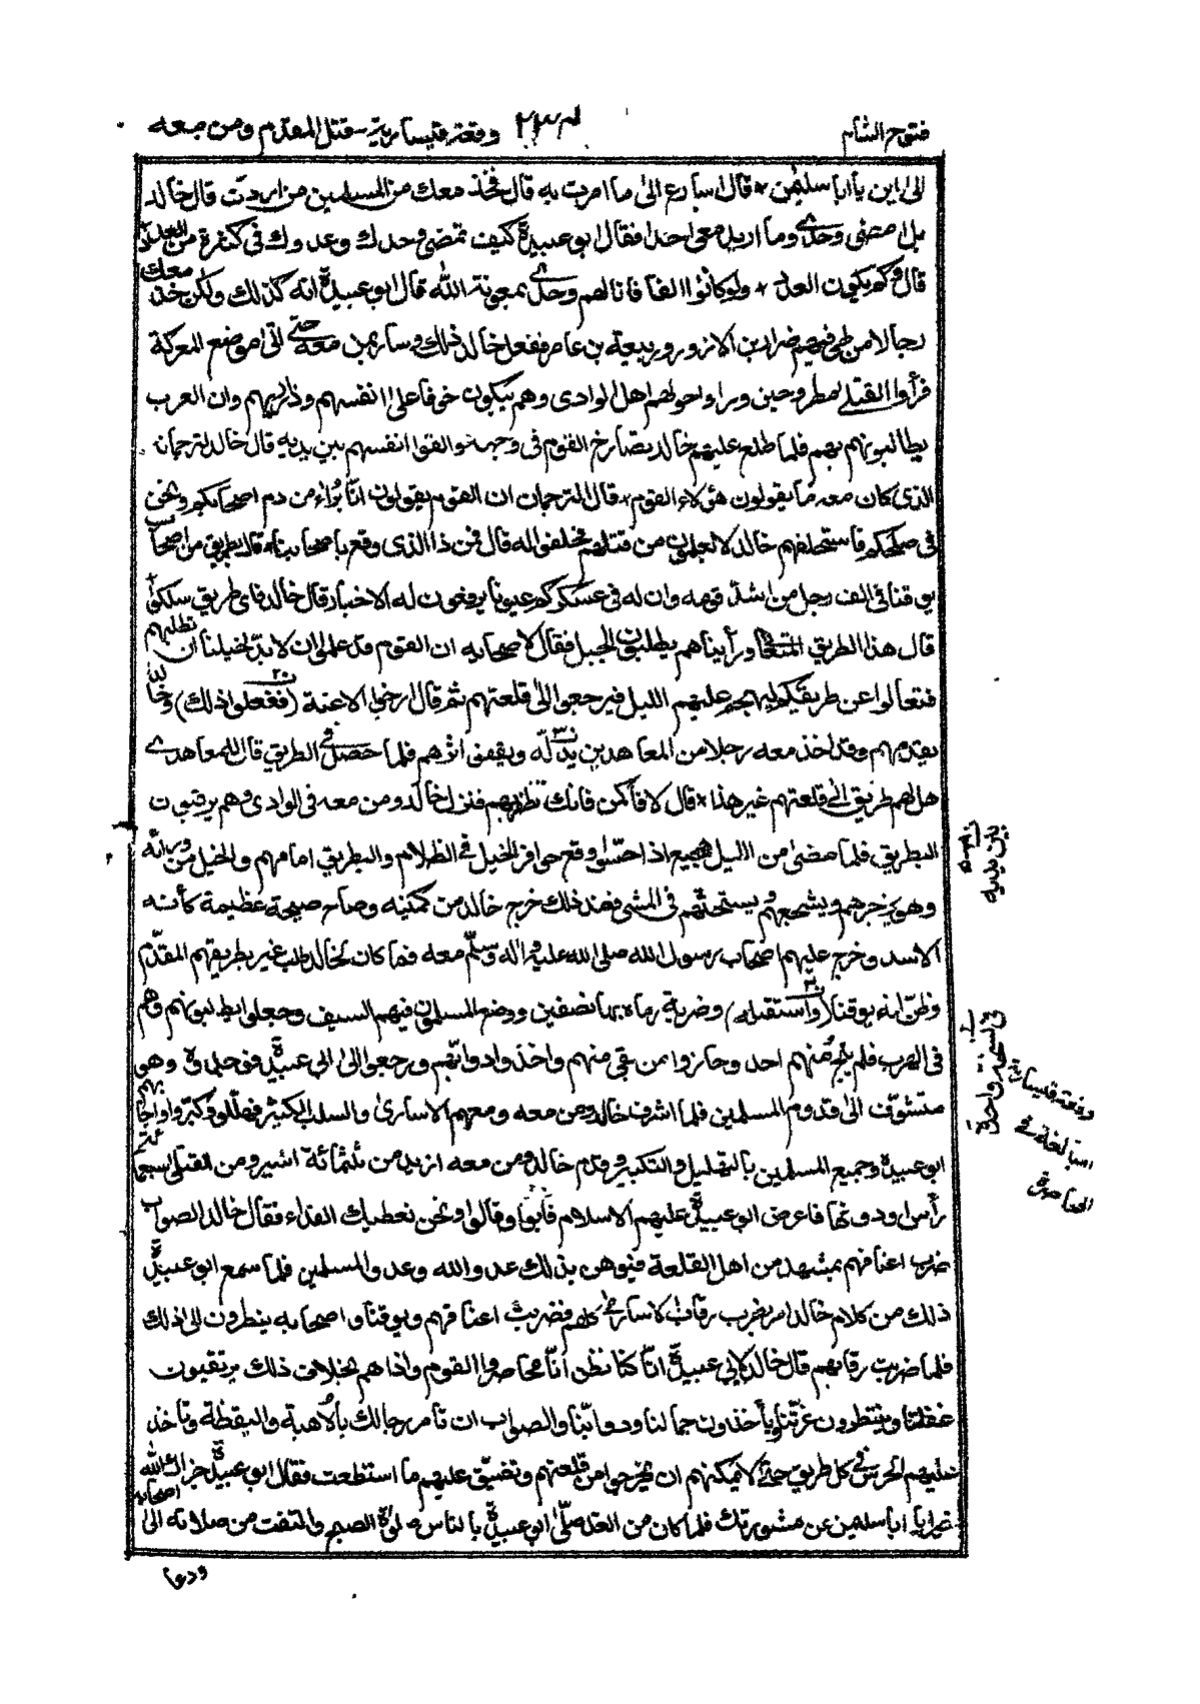 فتوح الشام
٢٣٤
وقعة قيسارية - قتل المقدم ومن معه
الى اين يا ابا سليمن * قال اسارع الى ما امرت به قال فخذ معك من المسلمين من اردت قال خالد
بل امضى وحدى وما اريد معى احدا فقال ابو عبيدة كيف تمضى وحدك وعدوك فى كثرة من العدد
قال وكم يكون العدد * ولو كانوا الفا فانا لهم وحدى بمعونة الله قال ابو عبيدة انه كذلك ولكن خذ معك
رجالا من طى فيهم ضرار بن الازور وربيعة بن عامر ففعل خالد ذلك وسار بمن معه حتى اتى موضع المعركة
فرأوا القتلى مطروحين وراوا حولهم اهل الوادى وهم يبكون خوفا على انفسهم وذراريهم وان العرب
يطالبونهم بهم فلما طلع عليهم خالد تصارخ القوم فى وجهه والقوا انفسهم بين يديه قال خالد لترجمانه
الذى كان معه ما يقولون هؤلاء القوم * قال الترجمان ان القوم يقولون انا براء من دم اصحابكم ونحن
فى صلحكم فاستحلفهم خالد لا يعلمون من قتلهم فحلفوا له قال فمن ذا الذى وقع باصحابنا * قال بطريق من اصحاب
يوقنا فى الف رجل من اشد قومه وان له فى عسكركم عيونا يرفعون له الاخبار قال خالد فاى طريق سلكوا
قال هذا الطريق ورأيناهم يطلبون الجبل فقال لاصحابه ان القوم قد علموا ان لا بد لخيلنا ان تطلبهم
فتعالوا عن طريقكم ليهجم عليهم الليل فيرجعوا الى قلعتهم ثم قال ارخوا الاعنة (ففعلوا ذلك) وخالد
يقدمهم وقد اخذ معه رجلا من المعاهدين يدله ويقفى اثرهم فلما حصل فى الطريق قال للمعاهدى
هل لهم طريق الى قلعتهم غير هذا * قال لا فأكمن فانك تظفر بهم فنزل خالد ومن معه فى الوادى وهم يرقبون
البطريق فلما مضى من الليل هجيع اذ احسوا وقع حوافر الخيل فى الظلام والبطريق امامهم والخيل من ورائه
وهو يزجرهم ويشجعهم ويستحثهم فى المشى فعند ذلك خرج خالد من كمينه وصاح صيحة عظيمة كأنه
الاسد وخرج عليهم اصحاب رسول الله صلى الله عليه واله وسلم معه فما كان لخالد طلب غير بطريقهم المقدم
وظن انه يوقنا (واستقبله) وضربه رماه بها نصفين ووضع المسلمون فيهم السيف وجعلوا يطلبونهم وهم
فى الهرب فلم ينج منهم احد وحازوا من بقى منهم واخذوا دوابهم ورجعوا الى ابى عبيدة وهو
متشوق الى قدوم المسلمين فلما اشرف خالد ومن معه ومعهم الاسارى والسلب الكثير فهللوا وكبروا واجابهم
ابو عبيدة وجميع المسلمين بالتهليل والتكبير وقدم خالد ومن معه ازيد من ثلثمائة اسير ومن القتلى سبعمائة
رأس او دونها فاعرض ابو عبيدة عليهم الاسلام فابوا وقالوا نحن نعطيك الفداء فقال خالد الصواب
ضرب اعناقهم بمشهد من اهل القلعة فنوهن بذلك عدو الله وعدو المسلمين فلما سمع ابو عبيدة
ذلك من كلام خالد امر بضرب رقاب الاسارى كلهم فضربت اعناقهم ويوقنا واصحابه ينظرون الى ذلك
فلما ضربت رقابهم قال خالد لابى عبيدة انا كنا نظن انا محاصروا القوم واذا هم بخلاف ذلك يرتقبون
غفلتنا وينتظرون غرتنا ويأخذون جمالنا ودوابنا والصواب ان تأمر رجالك بالأهبة واليقظة وتأخذ
عليهم الحرس فى كل طريق حتى لا يمكنهم ان يخرجوا من قلعتهم وتضيق عليهم ما استطعت فقال ابو عبيدة جزاك الله
خيرا يا ابا سليمن عن مشورتك فلما كان من الغد صلى ابو عبيدة بالناس صلوة الصبح والتفت من صلاته الى اصحابه
بين يديه
فى نسخة واحدة
ودعا